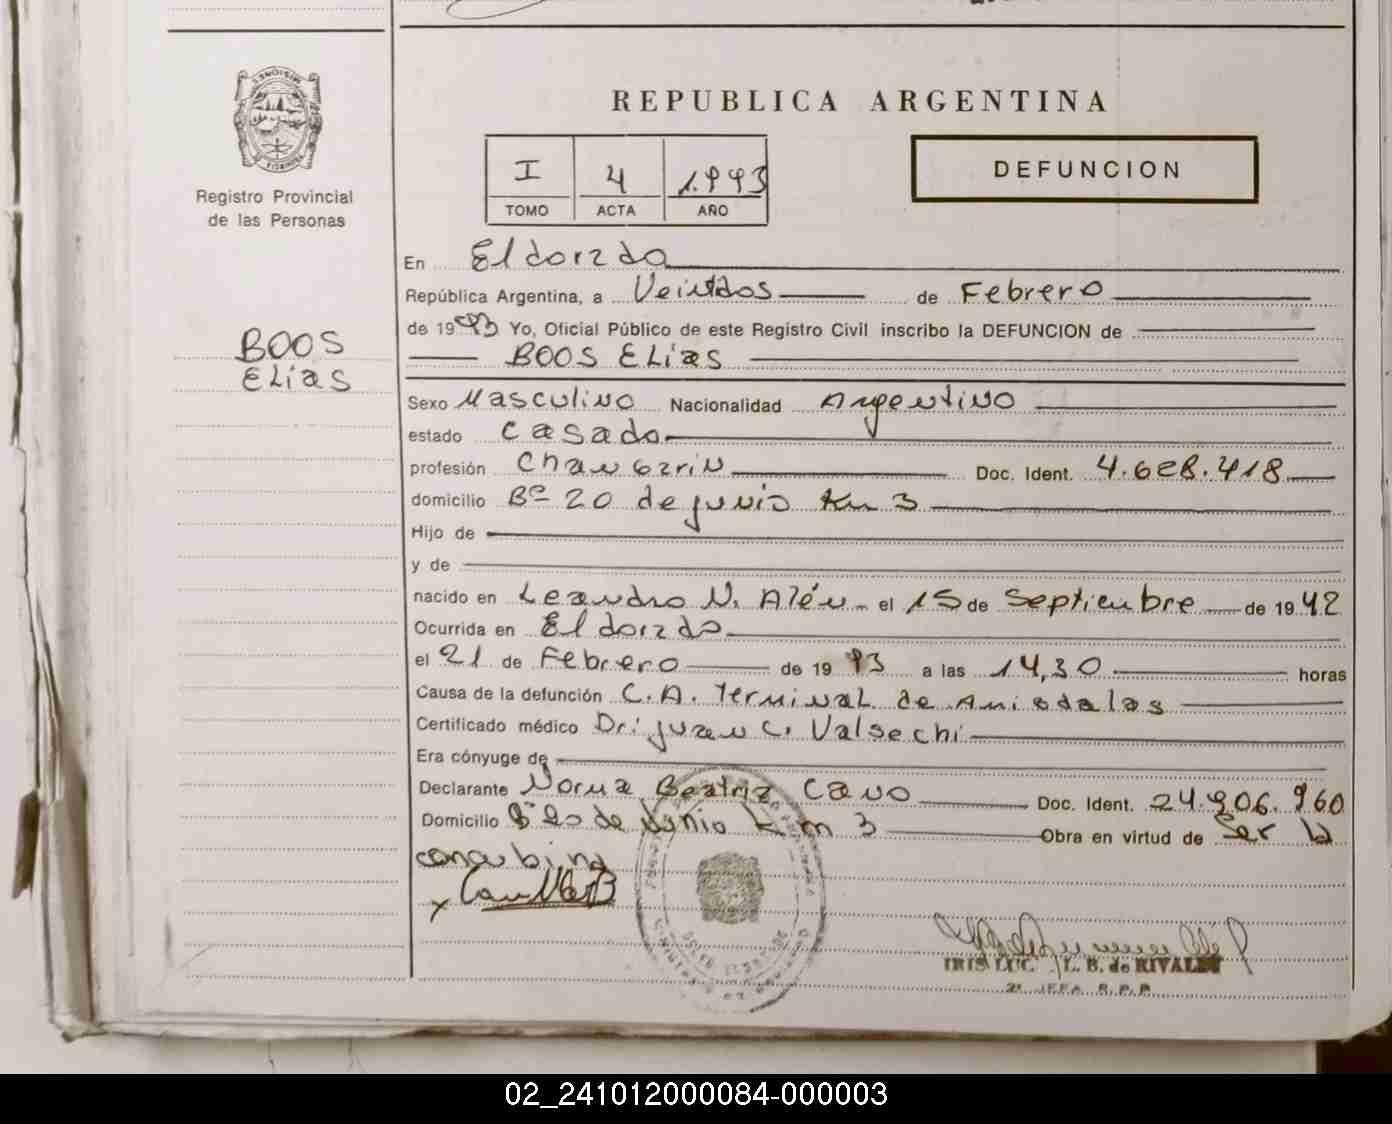 REPUBLICA ARGENTINA
I 4 1.993
TOMO ACTA AÑO
DEFUNCION
Registro Provincial
de las Personas
BOOS
ELias
En Eldorado
República Argentina, a Veintdos de Febrero
de 1993 Yo, Oficial Público de este Registro Civil inscribo la DEFUNCION de
BOOS ELias
Sexo Masculino Nacionalidad Argentino
estado casado
profesión Changarin Doc. Ident. 4.628.418
domicilio Bº 20 de junio Km 3
Hijo de
y de
nacido en Leandro N. Alén el 15 de Septienbre de 1942
Ocurrida en Eldorado
el 21 de Febrero de 1993 a las 14,30 horas
Causa de la defunción C.A. Terminal de
Certificado médico Dr: juan C. Valsechi
Era cónyuge de
Declarante Norma Beatriz Cano Doc. Ident. 24.906.960
Domicilio Bº 20 de Junio Km 3 Obra en virtud de Ser la
concubina
L. B. de RIVALDI
2ª JEFA R.P.P.
02_241012000084-000003